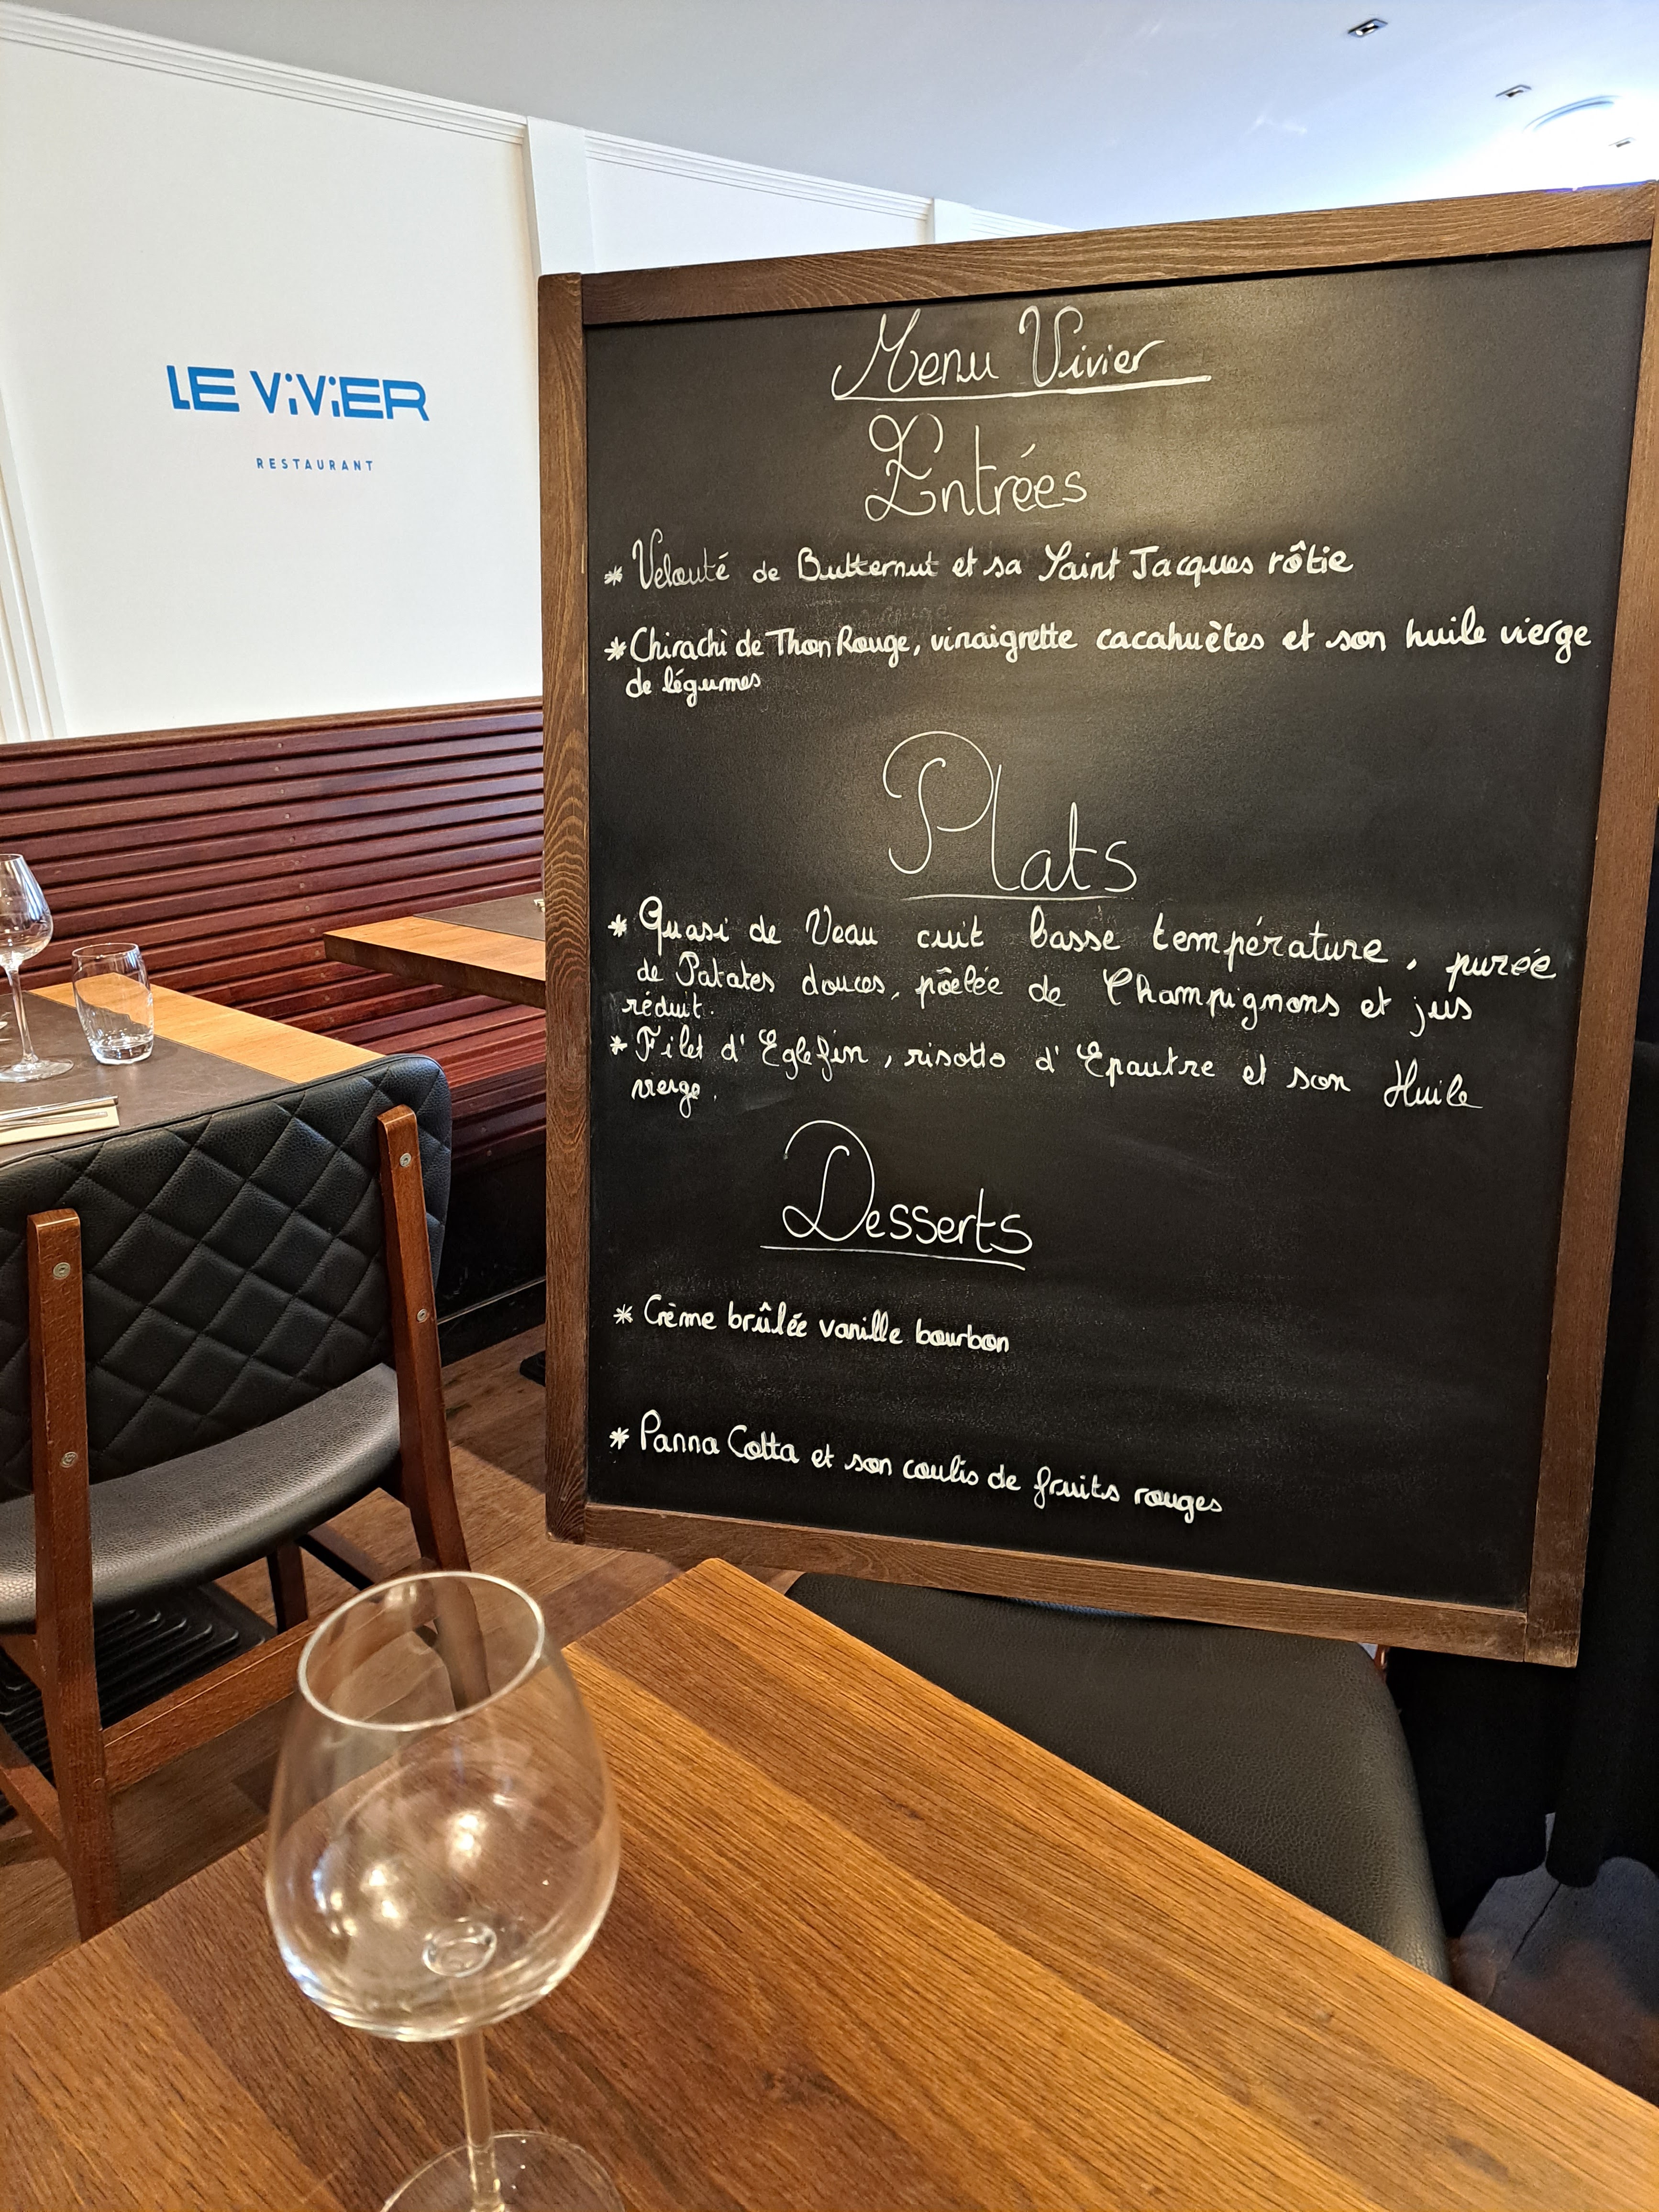 LE ViViER
RESTAURANT
Menu Vivier
Entrées
* Velouté de Butternut et sa Saint Jacques rôtie
* Chirachi de Thon Rouge, vinaigrette cacahuètes et son huile vierge
de légumes
Plats
* Quasi de Veau cuit basse température, purée
de Patates douces, pôelée de Champignons et jus
réduit.
* Filet d'Eglefin, risotto d'Epautre et son Huile
vierge.
Desserts
* Crème brûlée vanille bourbon
* Panna Cotta et son coulis de fruits rouges